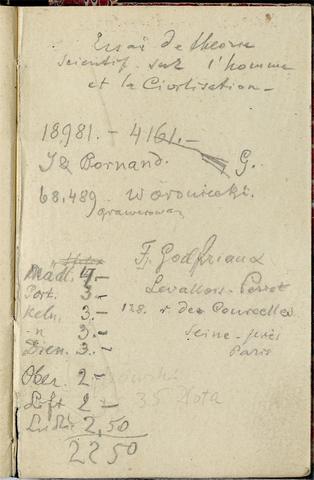 Essai de theorie
scientif. sur l'homme
et la Civilisation -
18981. - 4161. -
J & Bornand. G.
68.489 Woroniecki.
grawerowan
Mädl. 4.-
Port. 3.-
Keln. 3.-
-n 3.-
Dien. 3.-
Ober 2-
Lift 2-
2,50
22 50
Fr. Godfriaux
Levallois-Perret
128. r de Courcelles
Seine-près
Paris
35 złota